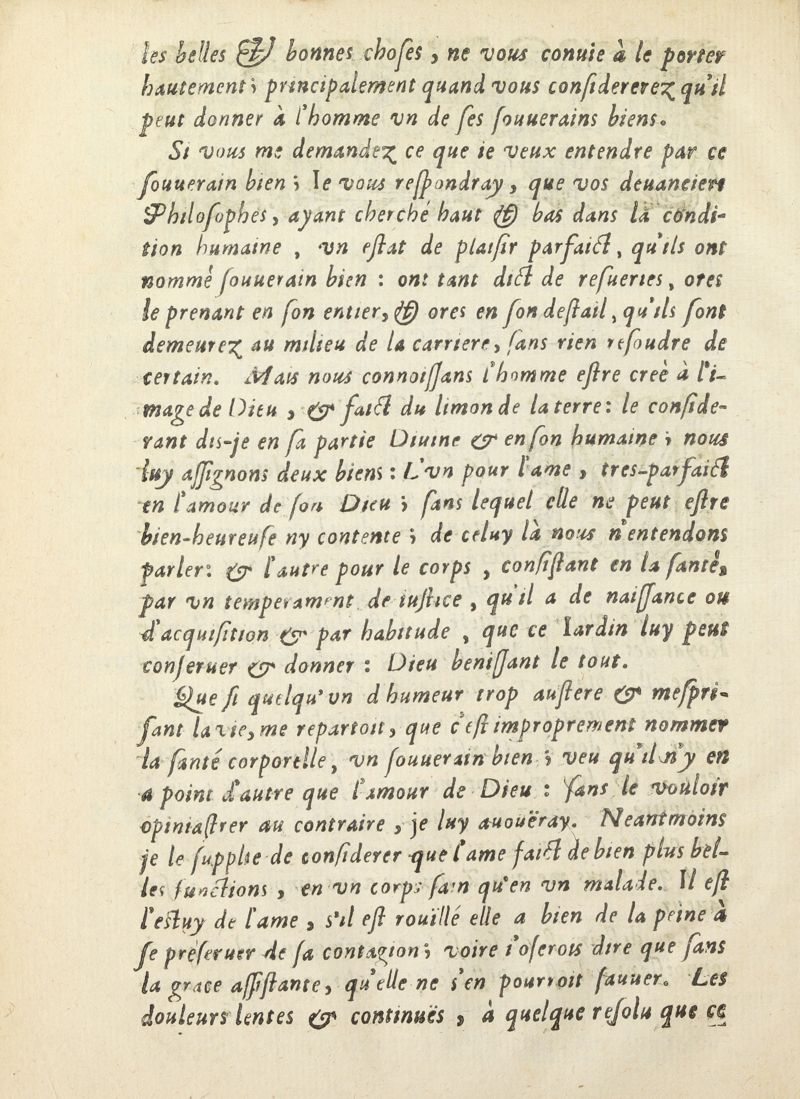 les belles & bonnes choſes, ne vous conuie à le porter
hautement; principalement quand vous conſidererez qu'il
peut donner à l'homme vn de ſes ſouuerains biens.
Si vous me demandez ce que ie veux entendre par ce
ſouuerain bien; Ie vous reſpondray, que vos deuanciers
Philoſophes, ayant cherché haut & bas dans la condi-
tion humaine, vn eſtat de plaiſir parfaict, qu'ils ont
nommé ſouuerain bien : ont tant dict de reſueries, ores
le prenant en ſon entier, & ores en ſon deſtail, qu'ils ſont
demeurez au milieu de la carriere, ſans rien reſoudre de
certain. Mais nous connoiſſans l'homme eſtre creé à l'i-
mage de Dieu, & faict du limon de la terre: le conſide-
rant dis-je en ſa partie Diuine & en ſon humaine; nous
luy aſſignons deux biens : L'vn pour l'ame, tres-parfaict
en l'amour de ſon Dieu; ſans lequel elle ne peut eſtre
bien-heureuſe ny contente; de celuy là nous n'entendons
parler: & l'autre pour le corps, conſiſtant en la ſanté,
par vn temperament de iuſtice, qu'il a de naiſſance ou
d'acquiſition & par habitude, que ce Iardin luy peut
conſeruer & donner : Dieu beniſſant le tout.
Que ſi quelqu'vn d'humeur trop auſtere & meſpri-
ſant la vie, me repartoit, que c'eſt improprement nommer
la ſanté corporelle, vn ſouuerain bien; veu qu'il n'y en
a point d'autre que l'amour de Dieu : ſans le vouloir
opiniaſtrer au contraire, je luy auoüeray. Neantmoins
je le ſupplie de conſiderer que l'ame faict de bien plus bel-
les functions, en vn corps ſain qu'en vn malade. Il eſt
l'eſtuy de l'ame, s'il eſt rouïllé elle a bien de la peine à
ſe preſeruer de ſa contagion; voire i'oſerois dire que ſans
la grace aſſiſtante, qu'elle ne s'en pourroit ſauuer. Les
douleurs lentes & continuës, à quelque reſolu que ce